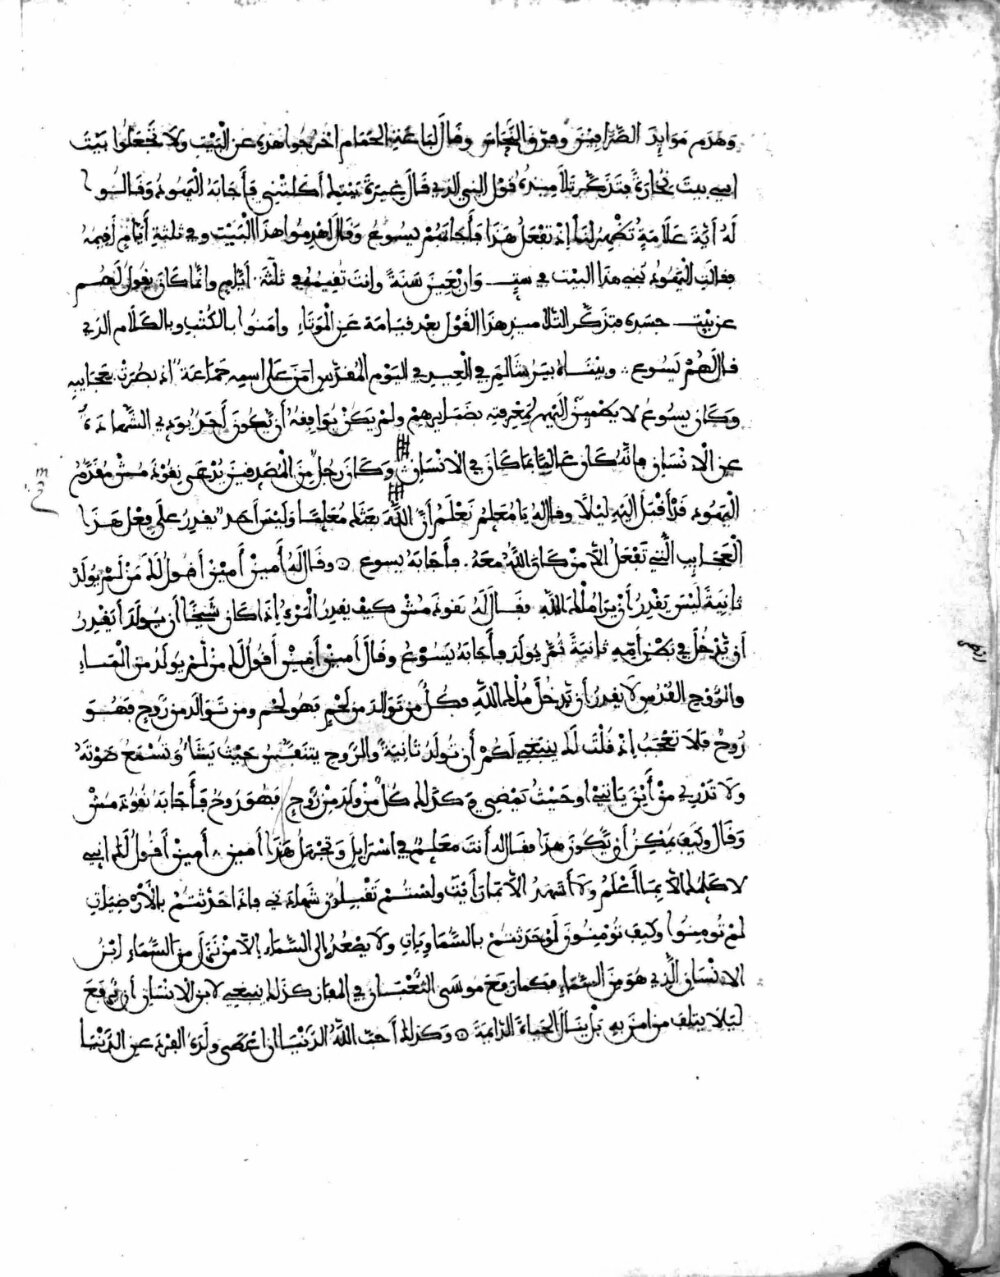 وهدم موايد الصرافين وفرق النحاس وقال لباعة الحمام اخرجوا هذه عن البيت ولا تجعلوا بيت
ابي بيت تجارة فتذكر تلاميذه قول النبي الذي قال غيرة بيتك أكلتني فأجابه اليهود وقالوا
له أية علامة تظهر لنا إذ تفعل هذا فأجابهم يسوع وقال اهدموا هذا البيت وفي ثلثة أيام أقيمه
فقالت اليهود بني هذا البيت في ست وأربعين سنة وانت تقيمه في ثلثة أيام وانما كان يقول لهم
عن بيت جسده فتذكر التلاميذ هذا القول بعد قيامة عن الموتاء وامنوا بالكتب وبالكلام الذي
قال لهم يسوع ∴ وبيناه بيرشالم في العيد في اليوم المقدس امن على اسمه جماعة اذ بصرت بعجايبه
وكان يسوع لا يطمين اليهم لمعرفته بضمايرهم ولم يكن يوافقه أن يكون أحد يودي الشهادة
عن الانسان فانه كان عالما بما كان في الانسان وكان رجل من المصدقين يدعى نقوذمش مقدم
اليهود فأقبل اليه ليلا وقال له يا معلم نعلم أن الله بعثك معلما وليس أحد يقدر على فعل هذا
العجايب التي تفعل الا من كان الله معه فأجابه يسوع ⊙ وقال له أمين أمين أقول لك من لم يولد
ثانية ليس يقدر أن يرا ملك الله فقال له نقوذمش كيف يقدر المرء إذا كان شيخا أن يولد أيقدر
أن يدخل في بطن أمه ثانية ثم يولد فأجابه يسوع وقال أمين أمين أقول لك من لم يولد من الماء
والروح القدس لا يقدر أن يدخل ملك الله فكل من توالد من لحم فهو لحم ومن توالد من روح فهو
روح فلا تعجب إذ قلت لك ينبغي لكم أن تولد ثانية والروح يتنفس حيث يشاء وتسمع صوته
ولا تدري من أين ياتي او حيث تمضي وكذلك كل من ولد من روح فهو روح فأجابه نقوذمش
وقال وكيف يمكن أن يكون هذا فقال له أنت معلم في اسرايل وتجهل هذا أمين أمين أقول لك اني
لا كلمك الا بما أعلم ولا أشهد الا بما رأيت ولستم تقبلون شهادتي فاذا حدثتكم بالأرضيات
لم تومنوا وكيف تومنون لو حدثتكم بالسماويات ولا يصعد إلى السماء إلا من نزل من السماء ابن
الانسان الذي هو من السماء فكما رفع موسى الثعبان في المفاز كذلك ينبغي لابن الانسان أن يرفع
ليلا يتلف من امن به بل ينال الحياة الدايمة ⊙ وكذلك أحب الله الدنيا اذ اعطى ولده الفرد عن الدنيا